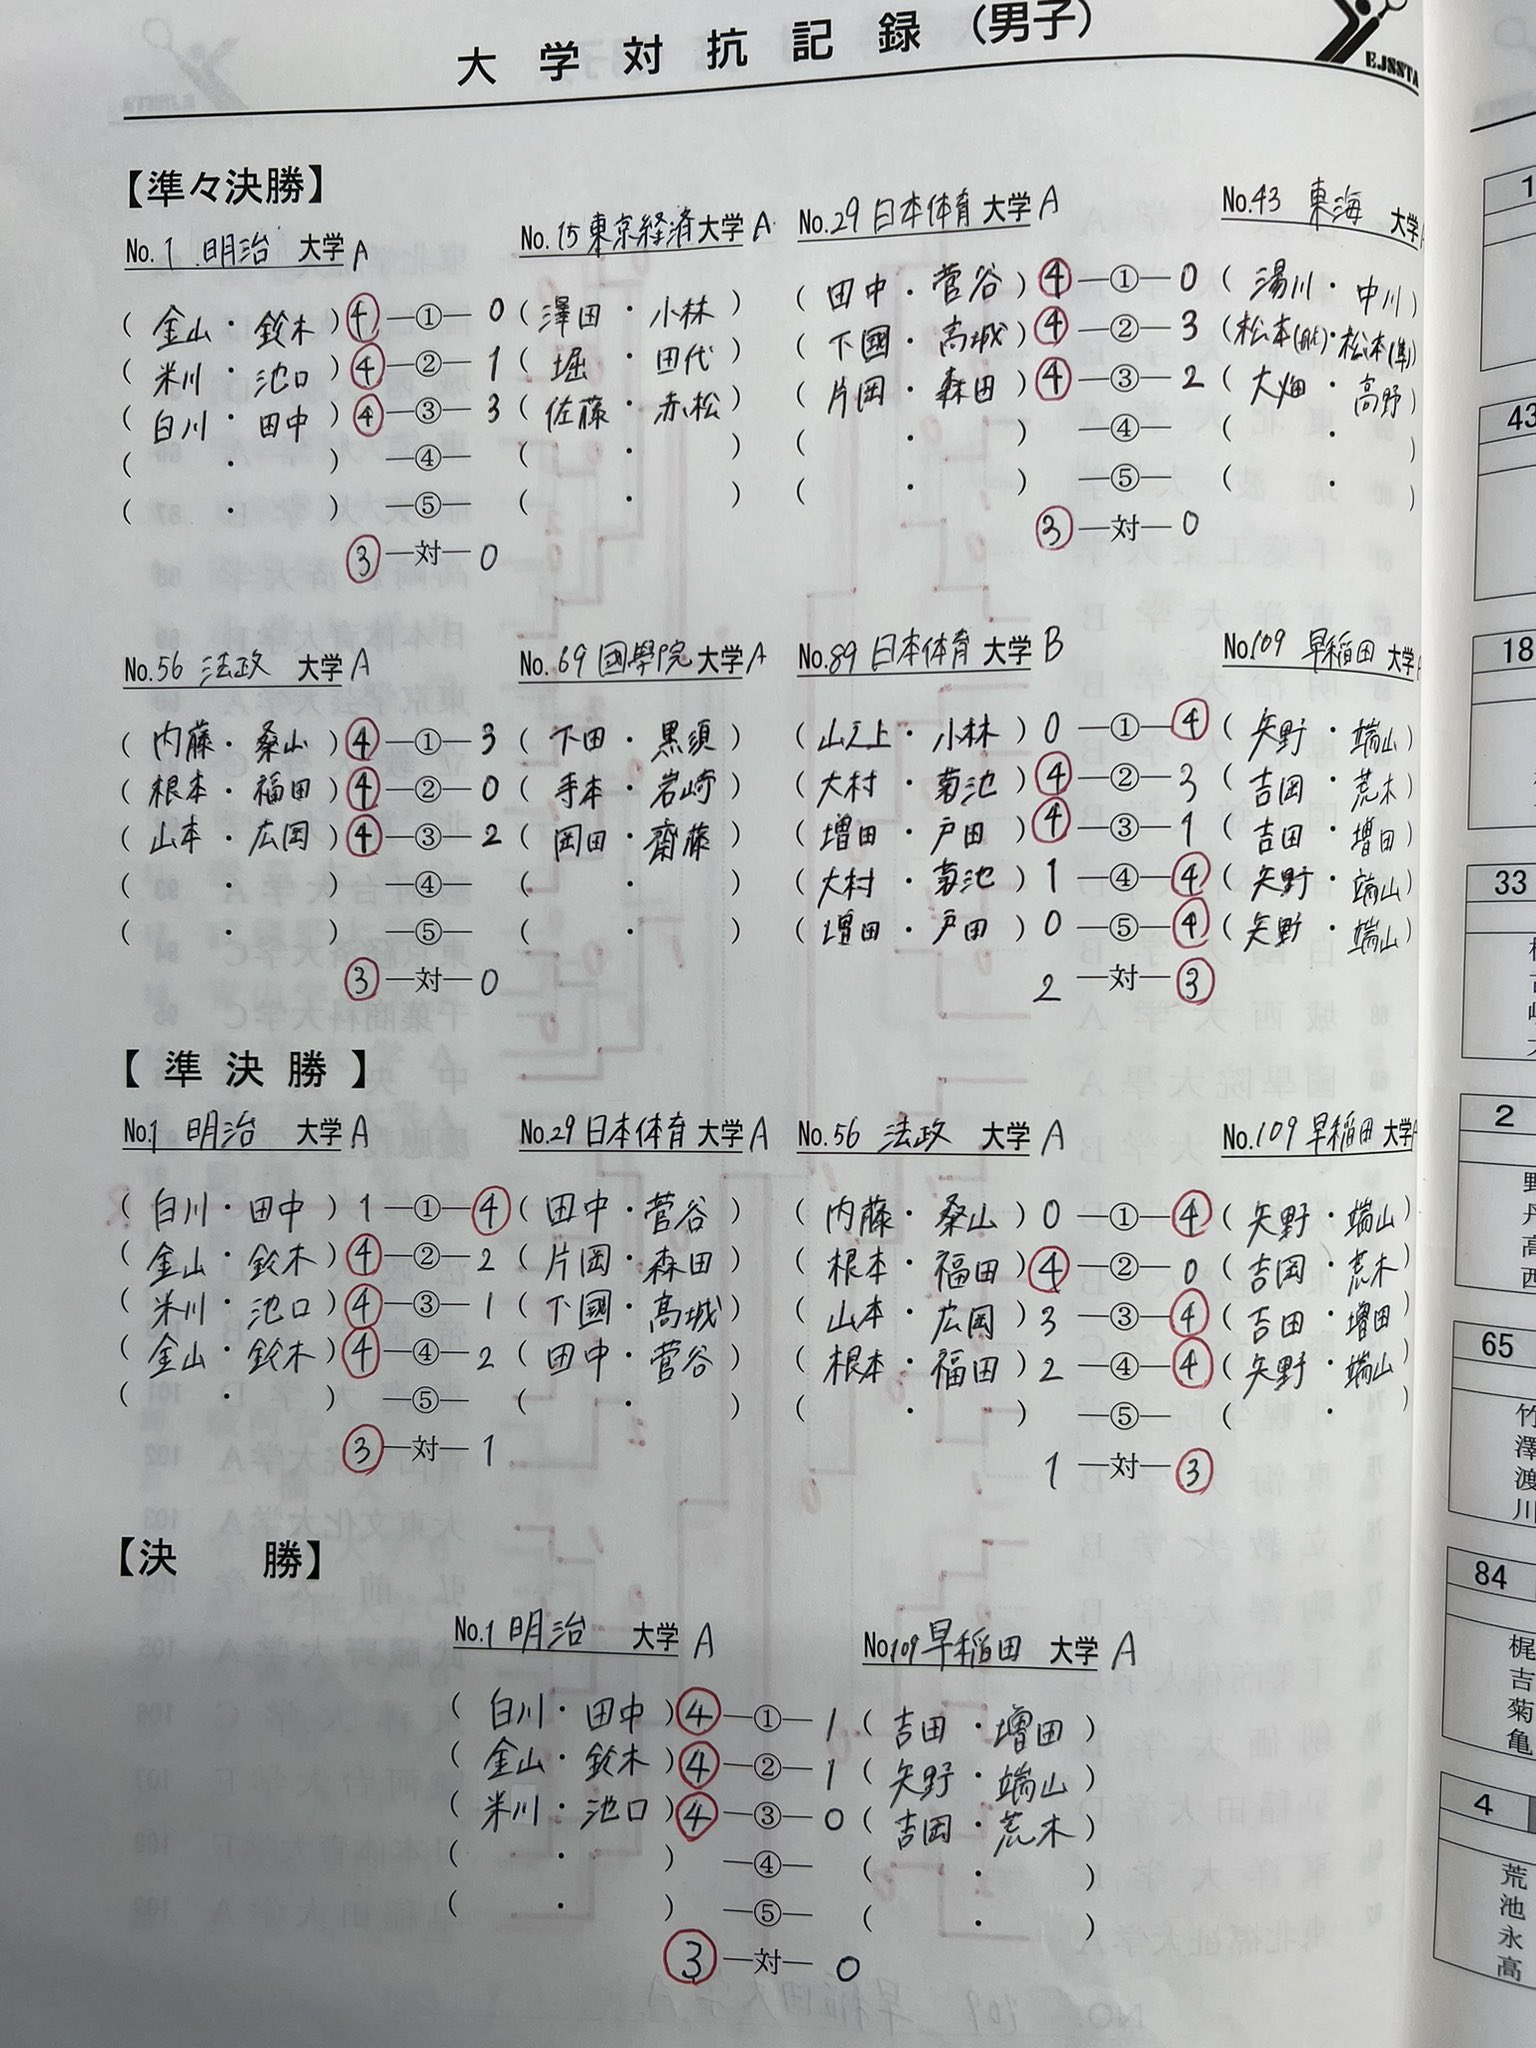 大学対抗記録（男子）
EJSSTA
【準々決勝】
No.1 明治 大学 A
No.15 東京経済大学 A
(金山・鈴木) 4 —①— 0 (澤田・小林)
(米川・池口) 4 —②— 1 (堀・田代)
(白川・田中) 4 —③— 3 (佐藤・赤松)
( ・ ) —④— ( ・ )
( ・ ) —⑤— ( ・ )
③ —対— 0
No.29 日本体育 大学 A
No.43 東海 大学
(田中・菅谷) 4 —①— 0 (湯川・中川)
(下國・高城) 4 —②— 3 (松本・松本(隼))
(片岡・森田) 4 —③— 2 (大畑・高野)
( ・ ) —④— ( ・ )
( ・ ) —⑤— ( ・ )
③ —対— 0
No.56 法政 大学 A
No.69 國學院 大学 A
(内藤・桑山) 4 —①— 3 (下田・黒須)
(根本・福田) 4 —②— 0 (・岩崎)
(山本・広岡) 4 —③— 2 (岡田・齋藤)
( ・ ) —④— ( ・ )
( ・ ) —⑤— ( ・ )
③ —対— 0
No.89 日本体育 大学 B
No.109 早稲田 大学
(山之上・小林) 0 —①— 4 (矢野・端山)
(大村・菊池) 4 —②— 3 (吉岡・荒木)
(増田・戸田) 4 —③— 1 (吉田・増田)
(大村・菊池) 1 —④— 4 (矢野・端山)
(増田・戸田) 0 —⑤— 4 (矢野・端山)
2 —対— ③
【準決勝】
No.1 明治 大学 A
No.29 日本体育 大学 A
(白川・田中) 1 —①— 4 (田中・菅谷)
(金山・鈴木) 4 —②— 2 (片岡・森田)
(米川・池口) 4 —③— 1 (下國・高城)
(金山・鈴木) 4 —④— 2 (田中・菅谷)
( ・ ) —⑤— ( ・ )
③ —対— 1
No.56 法政 大学 A
No.109 早稲田 大学A
(内藤・桑山) 0 —①— 4 (矢野・端山)
(根本・福田) 4 —②— 0 (吉岡・荒木)
(山本・広岡) 3 —③— 4 (吉田・増田)
(根本・福田) 2 —④— 4 (矢野・端山)
( ・ ) —⑤— ( ・ )
1 —対— ③
【決 勝】
No.1 明治 大学 A
No109 早稲田 大学 A
(白川・田中) 4 —①— 1 (吉田・増田)
(金山・鈴木) 4 —②— 1 (矢野・端山)
(米川・池口) 4 —③— 0 (吉岡・荒木)
( ・ ) —④— ( ・ )
( ・ ) —⑤— ( ・ )
③ —対— 0
1
43
18
33
2
野
丹
高
西
65
竹
澤
渡
川
84
梶
吉
菊
亀
4
荒
池
永
高